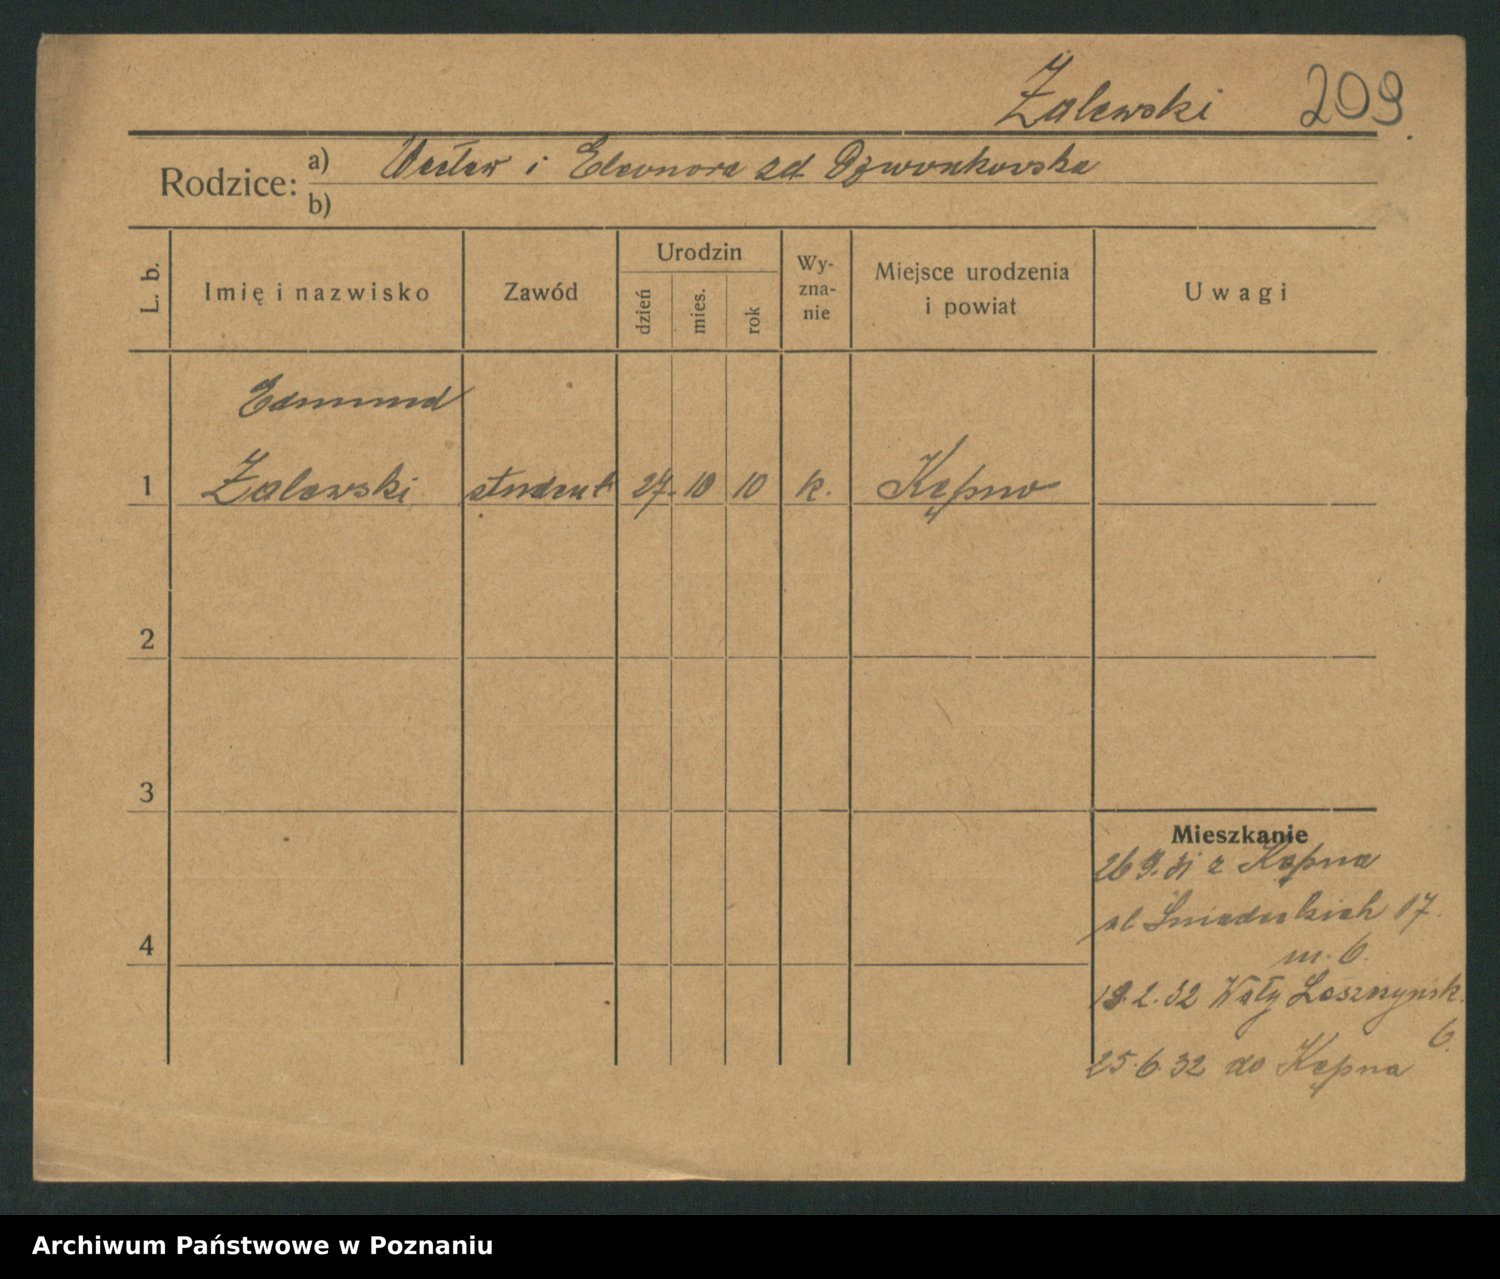 Zalewski 209
Rodzice: a) Wacław i Eleonora zd Dzwonkowska
b)
L. b. Imię i nazwisko Zawód Urodzin dzień mies. rok Wy-zna-nie Miejsce urodzenia i powiat Uwagi
Edmund
1 Zalewski student 27. 10 10 k. Kępno
2
3
4
Mieszkanie
26 9. 31 z Kępna
ul Śniadeckich 17.
m. 6.
19.2.32 Wały Leszczyńsk.
6.
25.6.32 do Kępna
Archiwum Państwowe w Poznaniu